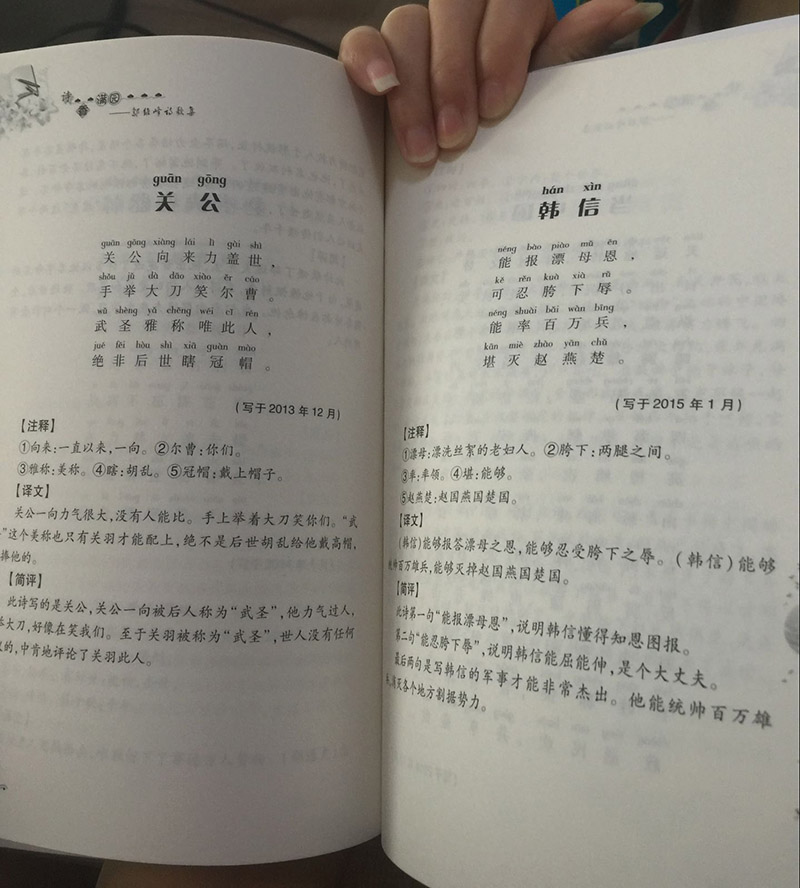 读 满园
——郭绍峰诗歌集
guān gōng
关公
guān gōng xiàng lái lì gài shì
关公向来力盖世，
shǒu jǔ dà dāo xiào ěr cáo
手举大刀笑尔曹。
wǔ shèng yǎ chēng wéi cǐ rén
武圣雅称唯此人，
jué fēi hòu shì xiā guàn mào
绝非后世瞎冠帽。
(写于2013年12月)
【注释】
①向来：一直以来，一向。②尔曹：你们。
③雅称：美称。④瞎：胡乱。⑤冠帽：戴上帽子。
【译文】
关公一向力气很大，没有人能比。手上举着大刀笑你们。“武
”这个美称也只有关羽才能配上，绝不是后世胡乱给他戴高帽，
捧他的。
【简评】
此诗写的是关公，关公一向被后人称为“武圣”，他力气过人，
举大刀，好像在笑我们。至于关羽被称为“武圣”，世人没有任何
的，中肯地评论了关羽此人。
hán xìn
韩信
néng bào piǎo mǔ ēn
能报漂母恩，
kě rěn kuà xià rǔ
可忍胯下辱。
néng shuài bǎi wàn bīng
能率百万兵，
kān miè zhào yān chǔ
堪灭赵燕楚。
(写于2015年1月)
【注释】
①漂母：漂洗丝絮的老妇人。②胯下：两腿之间。
③率：率领。④堪：能够。
⑤赵燕楚：赵国燕国楚国。
【译文】
(韩信)能够报答漂母之恩，能够忍受胯下之辱。(韩信)能够
统帅百万雄兵，能够灭掉赵国燕国楚国。
【简评】
此诗第一句“能报漂母恩”，说明韩信懂得知恩图报。
第二句“能忍胯下辱”，说明韩信能屈能伸，是个大丈夫。
最后两句是写韩信的军事才能非常杰出。他能统帅百万雄
灭各个地方割据势力。